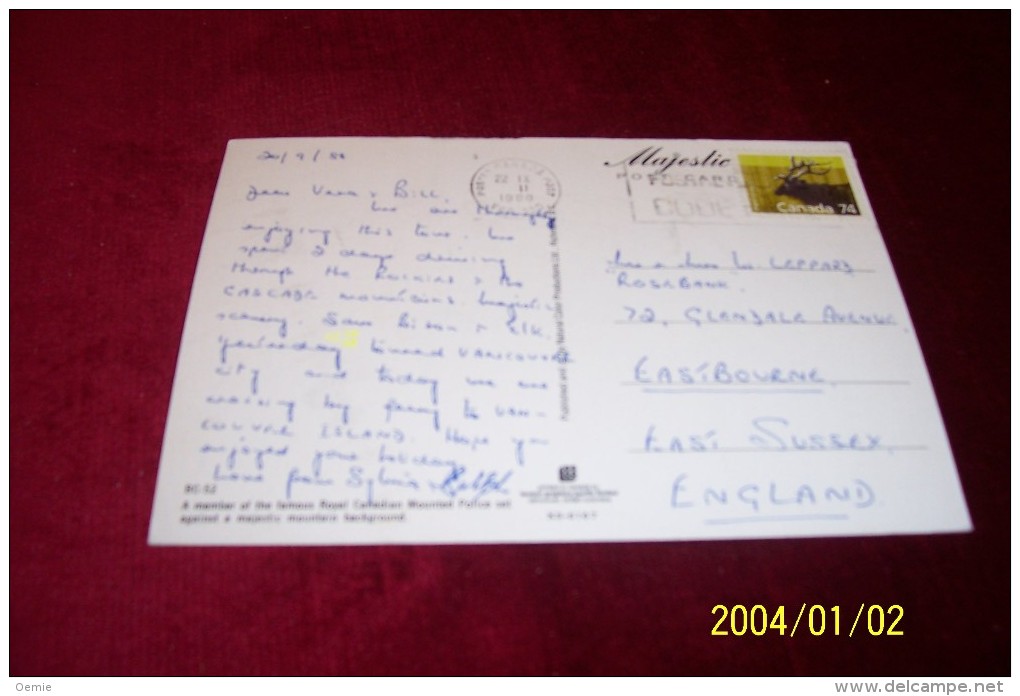 20/9/88
Dear Vera & Bill,
We are thoroughly
enjoying this tour. We
spent 2 days driving
through the Rockies & the
CASCADE mountains. Majestic
scenery. Saw Bison & Elk.
Yesterday toured VANCOUVER
city and today we are
moving by ferry to VAN-
COUVER ISLAND. Hope you
enjoyed your holiday
Love from Sylvia & Ralph
BC-52
A member of the famous Royal Canadian Mounted Police set
against a majestic mountain background.
Majestic
POST CARD
Canada 74
LEPPARD
ROSEBANK.
72, GLENDALE AVENUE,
EASTBOURNE,
EAST SUSSEX,
ENGLAND.
2004/01/02
Oemie
www.delcampe.net